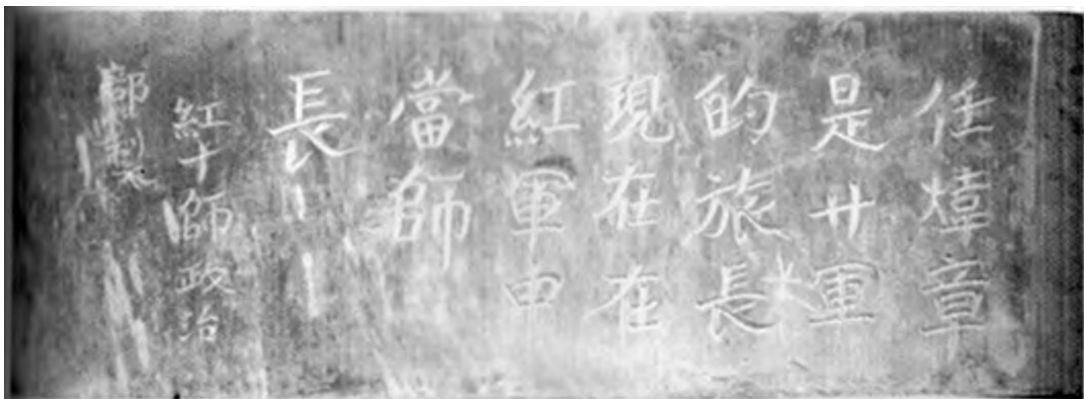 任煒章
是廿軍
的旅長
現在在
紅軍中
當師
長
紅十師政治
部製